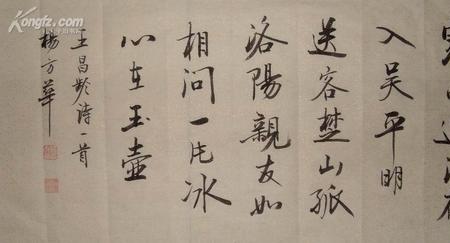 Kongfz.com
入吳平明
送客楚山孤
洛陽親友如
相問一片冰
心在玉壺
王昌齡詩一首
楊方華